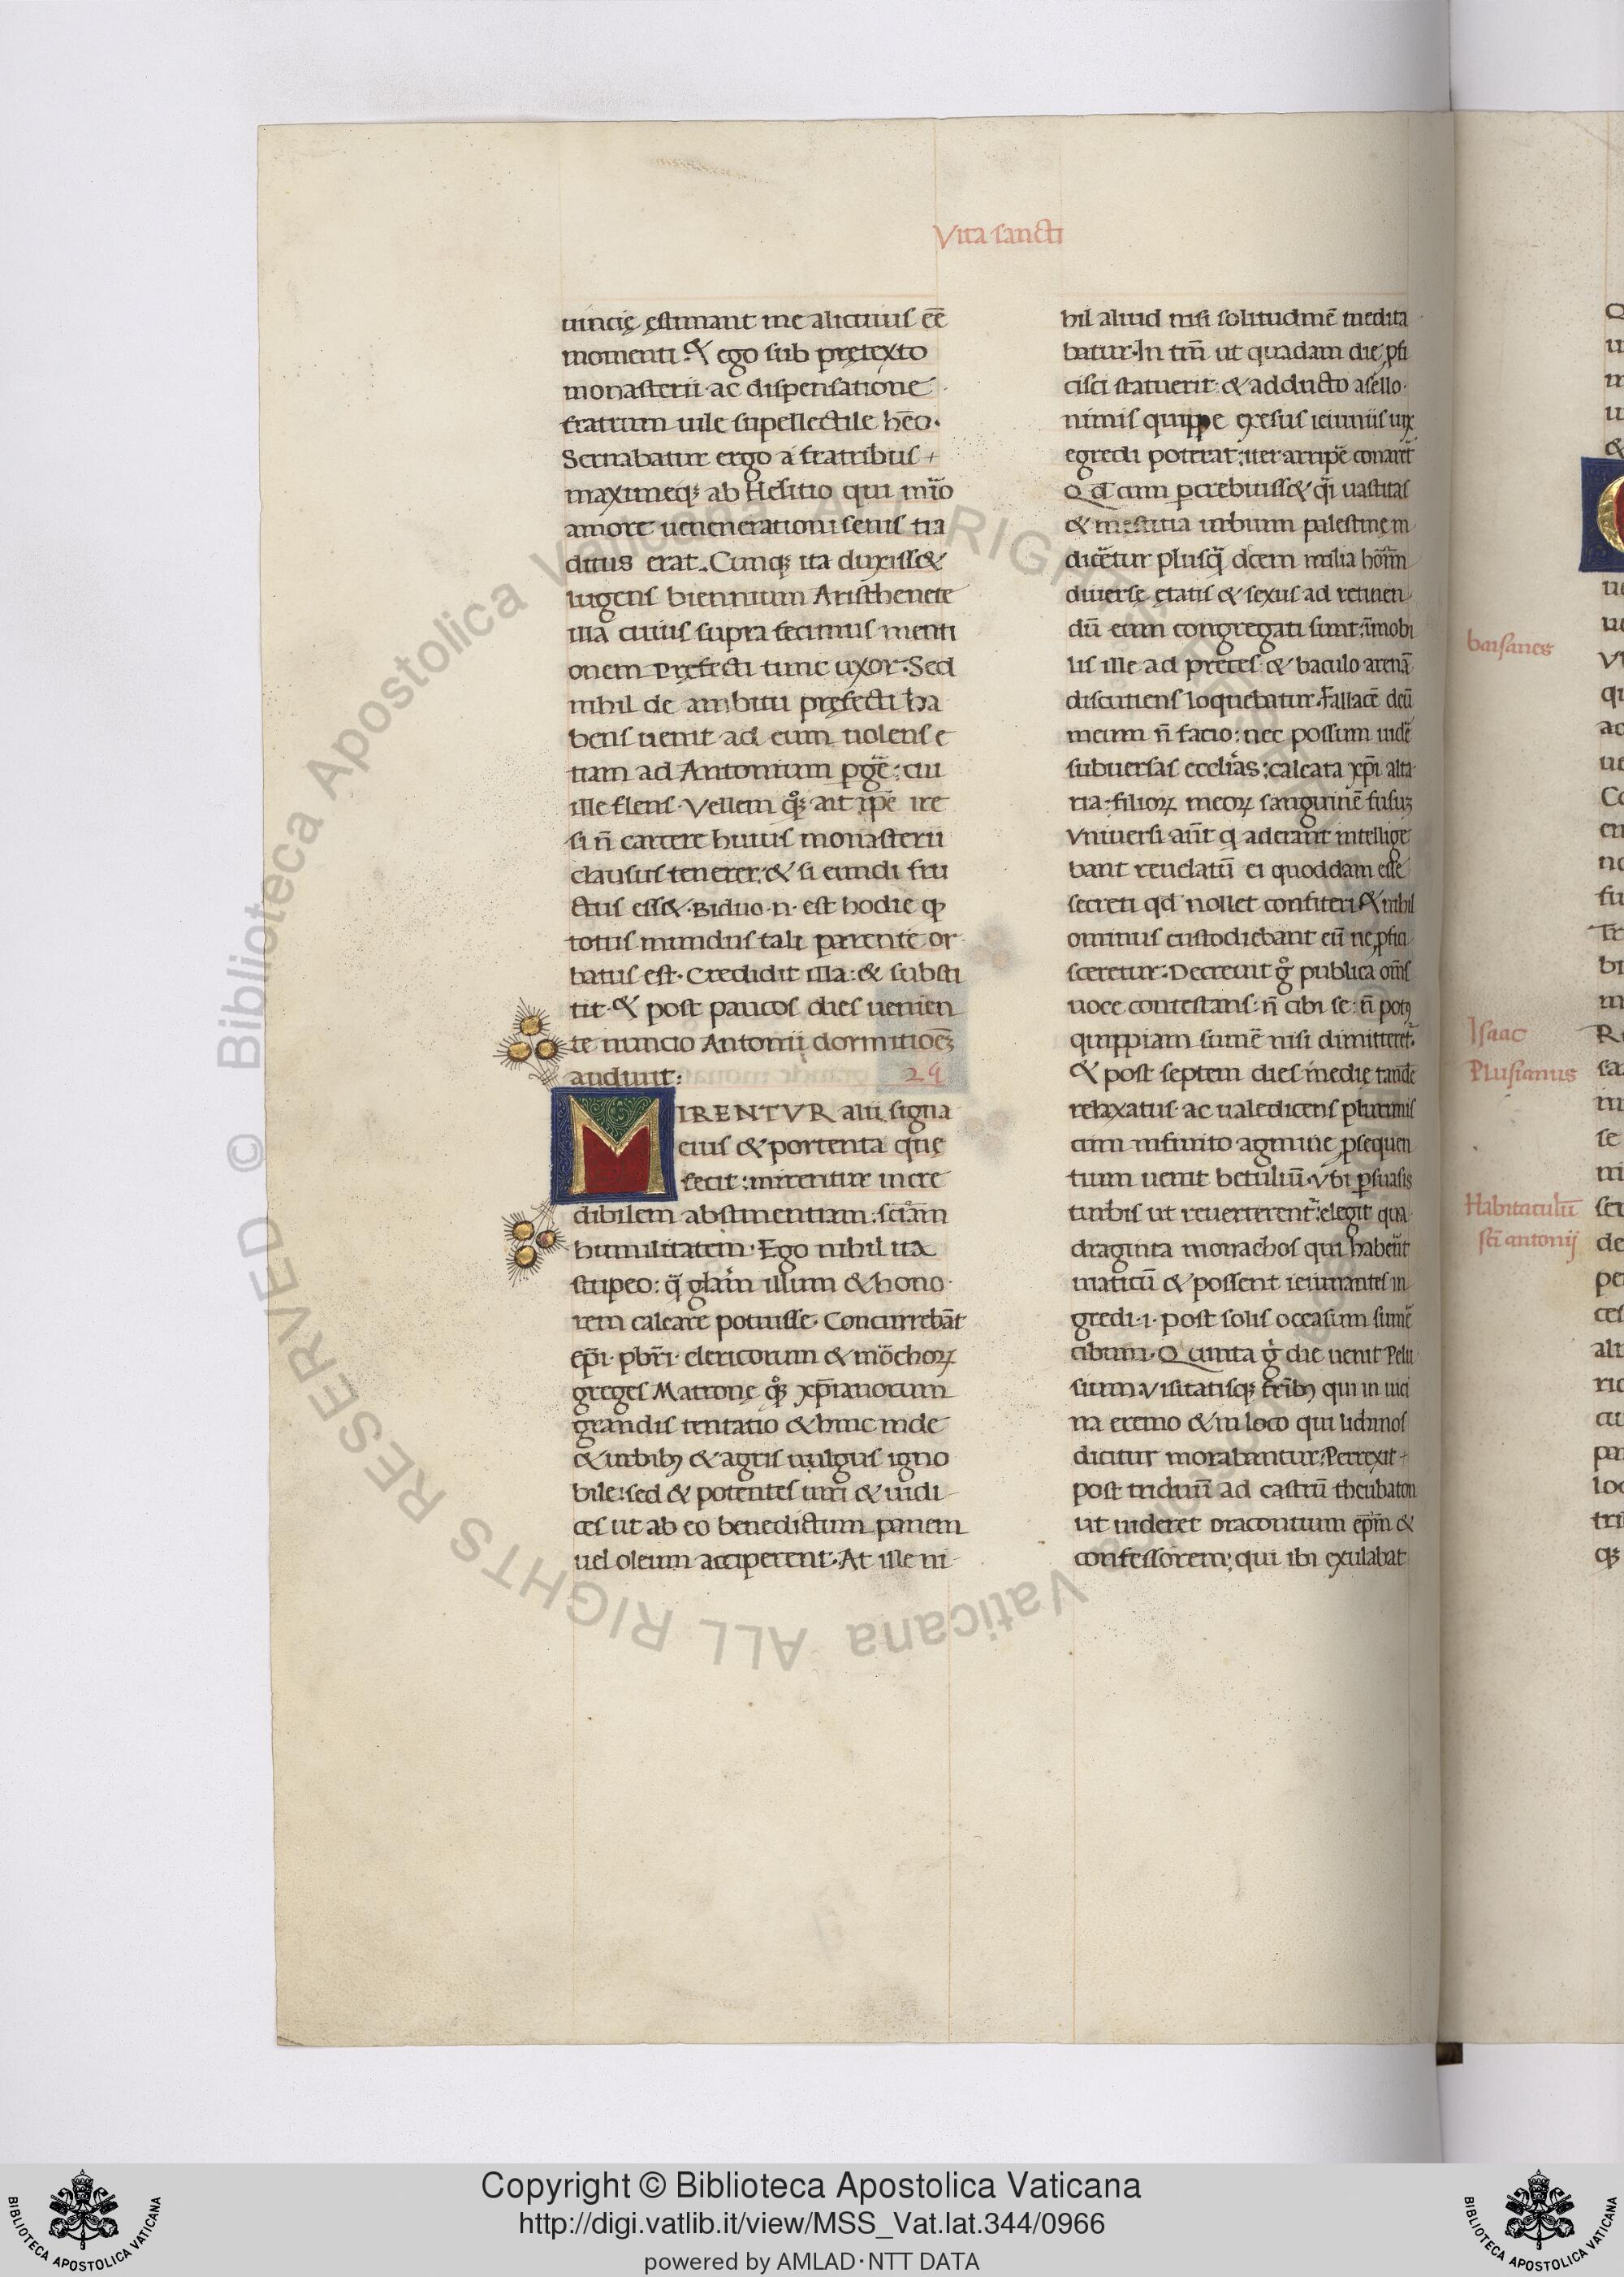 Vita sancti
uincię ęstimant me alicuius eē
momenti. & ego sub pretexto
monasterii ac dispensatione
fratrum uile supellectile hēo.
Seruabatur ergo a fratribus
maximeqꝫ ab Hesitio qui mīo
amore uenenerationi senis tra
ditus erat. Cunqꝫ ita duxiss&
lugens biennium Aristhenete
illa cuius supra fecimus menti
onem Pręfecti tunc uxor. Sed
nihil de ambitu pręfecti ha
bens uenit ad eum uolens e
tiam ad Antonium pgē: cui
ille flens. Vellem qꝫ ait ipē ire
si ñ carcere huius monasterii
clausus tenerer: & si eundi fru
ctus ess&. Biduo .n. est hodie qꝫ
totus mundus tali parente or
batus est. Credidit illa: & substi
tit. & post paucos dies uenien
te nuncio Antonii dormitioēꝫ
audiuit: 29
MIRENTVR alii signa
eius & portenta que
fecit: mirentur incre
dibilem abstinentiam: sciām
humilitatem. Ego nihil ita
stupeo: q̄ glaḿ illum & hono
rem calcare potuisse. Concurrebāt
epī. pbrī. clericorum & mōchoꝝ
greges Matronę qꝫ xpīanorum
grandis tentatio & hinc inde
& urbibꝰ & agris uulgus igno
bile: sed & potentes uiri & iudi
ces ut ab eo benedictum panem
uel oleum acciperent. At ille ni
hil aliud nisi solitudinē medita
batur. In tm̄ ut quadam die ꝓfi
cisci statuerit: & adducto asello.
nimis quippe exesus ieiuniis uix
egredi poterat: iter arripē conaret̄
Qd̄ cum percrebuiss& q̄i uastitas
& mestitia urbium palestinę in
dicētur plusq̄ dcem milia hoīm
diuerse ętatis & sexus ad retinen
dū eum congregati sunt: īmobi
lis ille ad preces: & baculo arenā
discutiens loquebatur. Fallacē deū
meum ñ facio: nec possum uidē
subuersas ecclīas: calcata xpī alta
ria: filioꝝ meoꝝ sanguinē fusuꝫ
Vniuersi aūt q̄ aderant intellige
bant reuelatū ei quoddam esse
secreti qd nollet confiteri & nihil
ominus custodiebant eū ne ꝓfici
sceretur. Decreuit g° publica oīns
uoce contestans: ñ cibi se: ñ potꝰ
quippiam sumē nisi dimitteret̄.
& post septem dies inedię tandē
relaxatus ac ualedicens plurimis
cum infinito agmine ꝓsequen
tum uenit betuliū. Vbi ꝑsuasis
turbis ut reuerterent̄: elegit qua
draginta monachos qui habeūt
uiaticū & possent ieiunantes in
gredi .i. post solis occasum sumē
cibum. Quinta g° die uenit Pelu
sium. Visitatisqꝫ frībꝰ qui in uici
na eremo & in loco qui lidinnos
dicitur morabantur: Perrexit
post triduū ad castrū theubaton
ut uideret Dracontium epīm &
confessorem: qui ibi exulabat
baisanes
Isaac
Plusianus
Habitaculū
sc̄i antonij
Copyright © Biblioteca Apostolica Vaticana
http://digi.vatlib.it/view/MSS_Vat.lat.344/0966
powered by AMLAD·NTT DATA
BIBLIOTECA APOSTOLICA VATICANA
BIBLIOTECA APOSTOLICA VATICANA
© Biblioteca Apostolica Vaticana ALL RIGHTS RESERVED